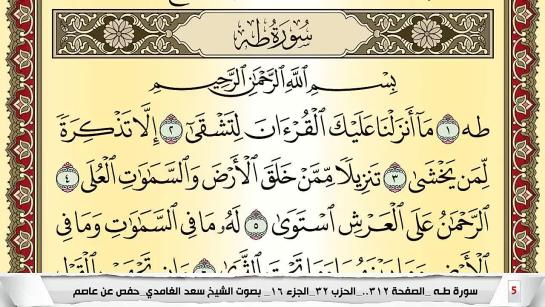 سُورَةُ طه
بِسْمِ ٱللَّهِ ٱلرَّحْمَٰنِ ٱلرَّحِيمِ
طه ١ مَآ أَنزَلْنَا عَلَيْكَ ٱلْقُرْءَانَ لِتَشْقَىٰٓ ٢ إِلَّا تَذْكِرَةً
لِّمَن يَخْشَىٰ ٣ تَنزِيلًا مِّمَّنْ خَلَقَ ٱلْأَرْضَ وَٱلسَّمَٰوَٰتِ ٱلْعُلَى ٤
ٱلرَّحْمَٰنُ عَلَى ٱلْعَرْشِ ٱسْتَوَىٰ ٥ لَهُۥ مَا فِى ٱلسَّمَٰوَٰتِ وَمَا فِى
سورة طه _الصفحة ٣١٢_.. الحزب ٣٢_ الجزء ١٦ _ بصوت الشيخ سعد الغامدي_ حفص عن عاصم
5